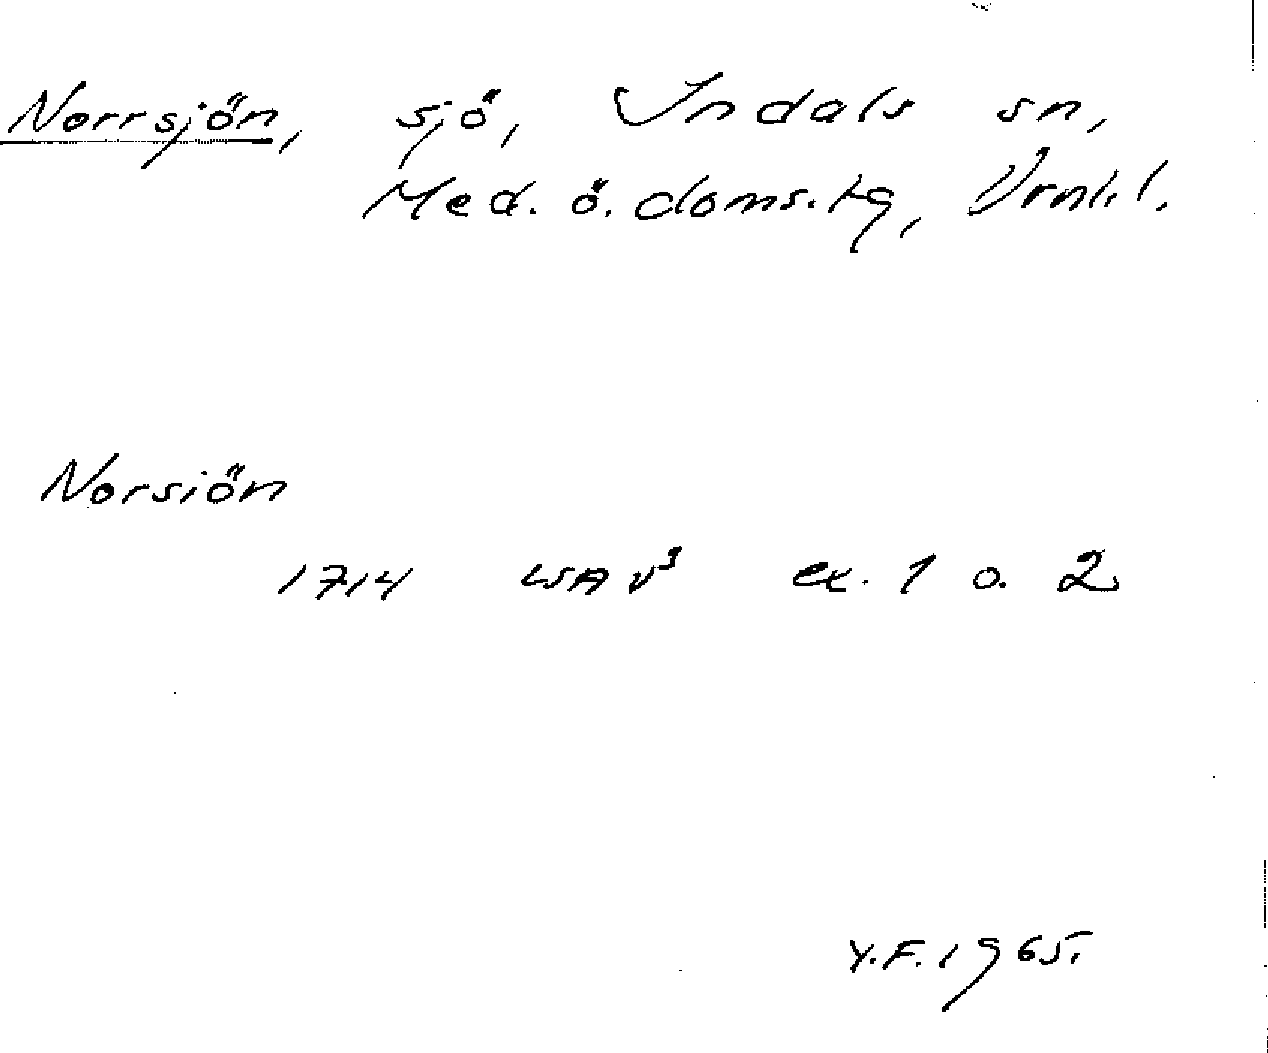 Norrsjön, sjö, Indals sn,
Med. ö. doms.tg, Vrnl.l.
Norsiön
1714 LSA V³ ex. 1 o. 2
Y.F. 1965.